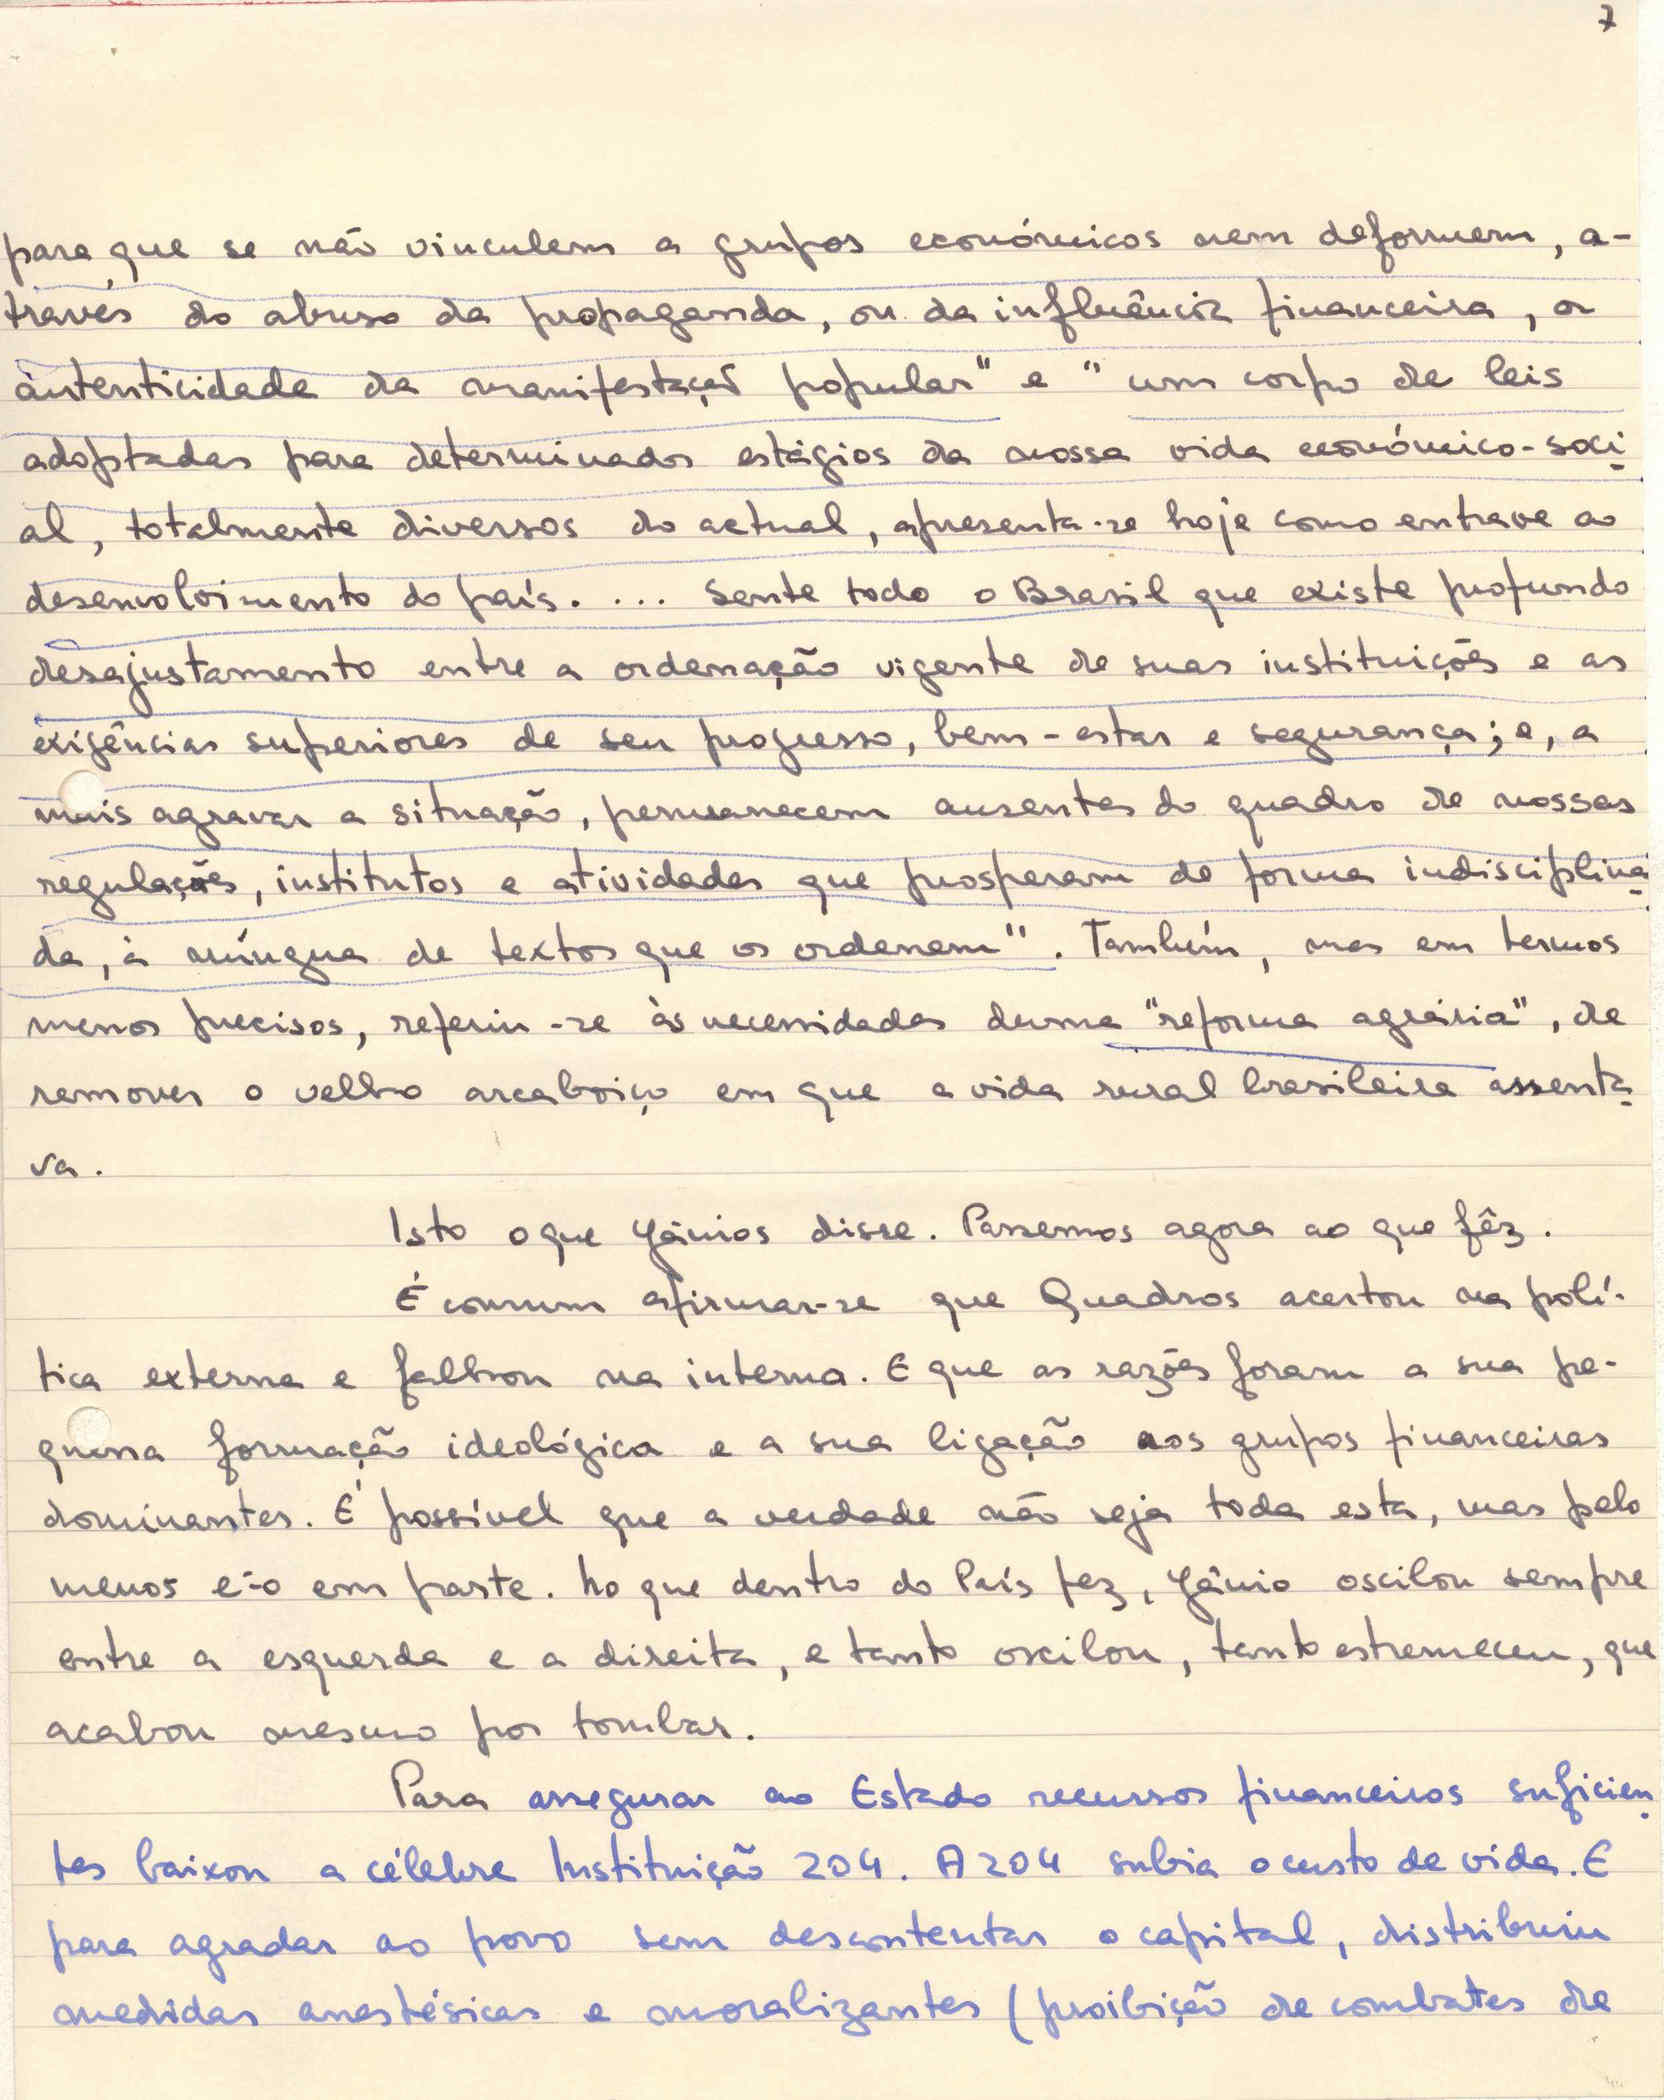 7
para que se não vinculem a grupos económicos nem deformem, a-
través do abuso da propaganda, ou da influência financeira, a
autenticidade da manifestação popular" e "um corpo de leis
adoptadas para determinados estágios da nossa vida económico-soci
al, totalmente diversos do actual, apresenta-se hoje como entrave ao
desenvolvimento do país. ... Sente todo o Brasil que existe profundo
desajustamento entre a ordenação vigente de suas instituições e as
exigências superiores de seu progresso, bem-estar e segurança; e, a
mais agravar a situação, permanecem ausentes do quadro de nossas
regulações, institutos e atividades que prosperam de forma indisciplina
da, à míngua de textos que os ordenem". Também, mas em termos
menos precisos, referiu-se às necessidades duma "reforma agrária", de
remover o velho arcaboiço em que a vida rural brasileira assenta
va.
Isto o que Jânios disse. Passemos agora ao que fêz.
É comum afirmar-se que Quadros acertou na polí-
tica externa e falhou na interna. E que as razões foram a sua pe-
quena formação ideológica e a sua ligação aos grupos financeiros
dominantes. É possível que a verdade não seja toda esta, mas pelo
menos é-o em parte. No que dentro do País fez, Jânio oscilou sempre
entre a esquerda e a direita, e tanto oscilou, tanto estremeceu, que
acabou mesmo por tombar.
Para assegurar ao Estado recursos financeiros suficien
tes baixou a célebre Instituição 204. A 204 subia o custo de vida. E
para agradar ao povo sem descontentar o capital, distribuiu
medidas anestésicas e moralizantes (proibição de combates de